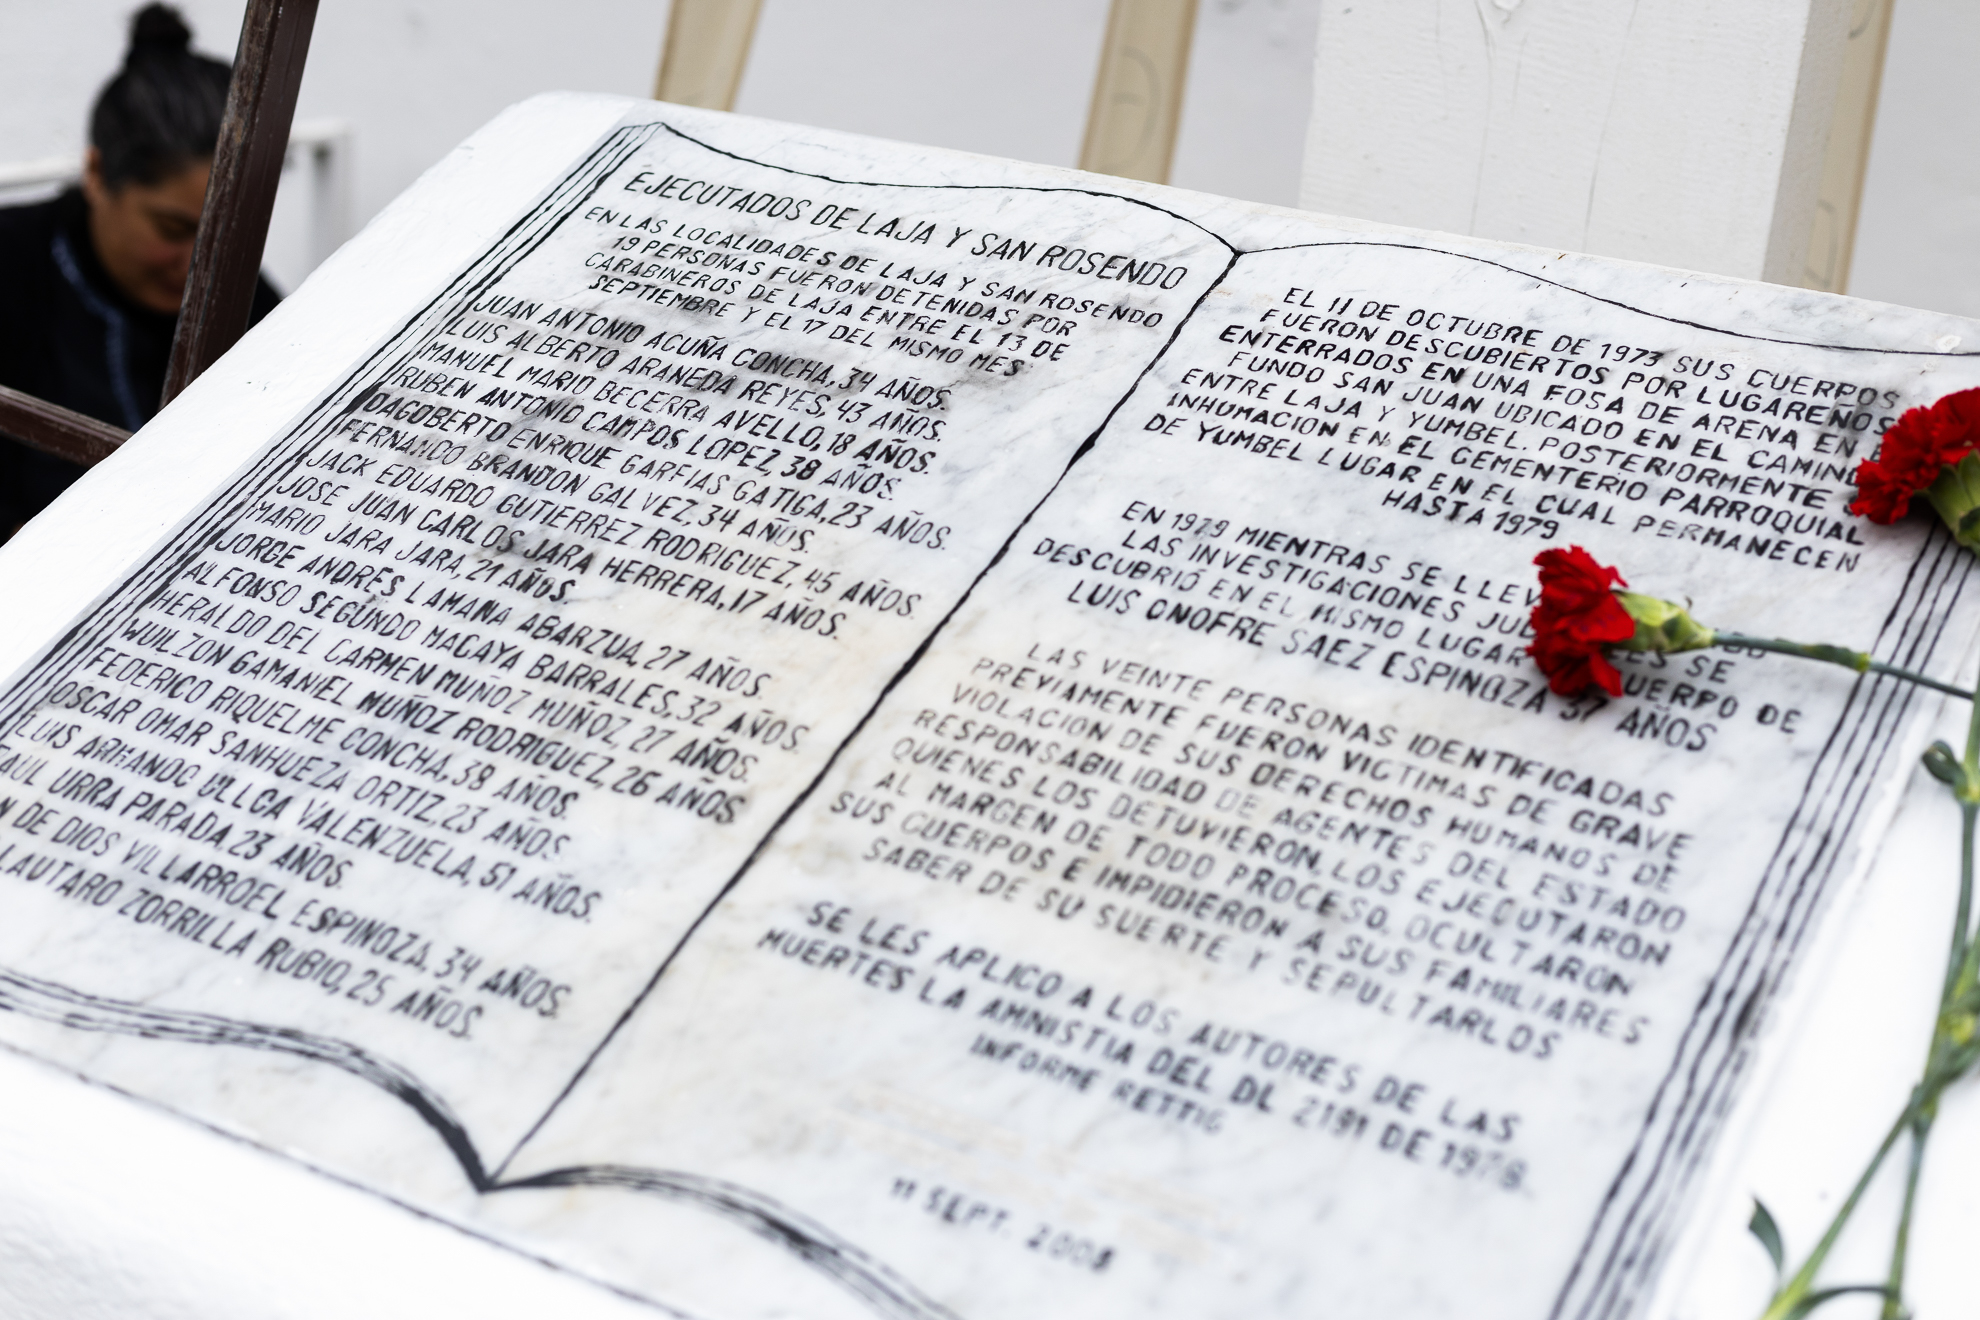 EJECUTADOS DE LAJA Y SAN ROSENDO
EN LAS LOCALIDADES DE LAJA Y SAN ROSENDO
19 PERSONAS FUERON DETENIDAS POR
CARABINEROS DE LAJA ENTRE EL 13 DE
SEPTIEMBRE Y EL 17 DEL MISMO MES
JUAN ANTONIO ACUÑA CONCHA, 34 AÑOS.
LUIS ALBERTO ARANEDA REYES, 43 AÑOS.
MANUEL MARIO BECERRA AVELLO, 18 AÑOS.
RUBEN ANTONIO CAMPOS LOPEZ, 38 AÑOS.
DAGOBERTO ENRIQUE GARFIAS GATICA, 23 AÑOS.
FERNANDO BRANDON GALVEZ, 34 AÑOS.
JACK EDUARDO GUTIERREZ RODRIGUEZ, 45 AÑOS
JOSE JUAN CARLOS JARA HERRERA, 17 AÑOS.
MARIO JARA JARA, 21 AÑOS.
JORGE ANDRES LAMANA ABARZUA, 27 AÑOS.
ALFONSO SEGUNDO MACAYA BARRALES, 32 AÑOS.
HERALDO DEL CARMEN MUÑOZ MUÑOZ, 27 AÑOS.
WUILZON GAMANIEL MUÑOZ RODRIGUEZ, 26 AÑOS
FEDERICO RIQUELME CONCHA, 38 AÑOS.
OSCAR OMAR SANHUEZA ORTIZ, 23 AÑOS.
LUIS ARMANDO ULLOA VALENZUELA, 51 AÑOS.
AUL URRA PARADA 23 AÑOS.
N DE DIOS VILLARROEL ESPINOZA, 34 AÑOS.
LAUTARO ZORRILLA RUBIO, 25 AÑOS.
EL 11 DE OCTUBRE DE 1973 SUS CUERPOS
FUERON DESCUBIERTOS POR LUGAREÑOS
ENTERRADOS EN UNA FOSA DE ARENA EN
FUNDO SAN JUAN UBICADO EN EL CAMINO
ENTRE LAJA Y YUMBEL. POSTERIORMENTE
INHUMACION EN EL CEMENTERIO PARROQUIAL
DE YUMBEL LUGAR EN EL CUAL PERMANECEN
HASTA 1979
EN 1979 MIENTRAS SE LLEV
LAS INVESTIGACIONES JUD LES SE
DESCUBRIÓ EN EL MISMO LUGAR CUERPO DE
LUIS ONOFRE SAEZ ESPINOZA 37 AÑOS
LAS VEINTE PERSONAS IDENTIFICADAS
PREVIAMENTE FUERON VICTIMAS DE GRAVE
VIOLACION DE SUS DERECHOS HUMANOS DE
RESPONSABILIDAD DE AGENTES DEL ESTADO
QUIENES LOS DETUVIERON, LOS EJECUTARON
AL MARGEN DE TODO PROCESO, OCULTARON
SUS CUERPOS E IMPIDIERON A SUS FAMILIARES
SABER DE SU SUERTE Y SEPULTARLOS
SE LES APLICO A LOS AUTORES DE LAS
MUERTES LA AMNISTIA DEL DL 2191 DE 1978.
INFORME RETTIG
11 SEPT. 2008